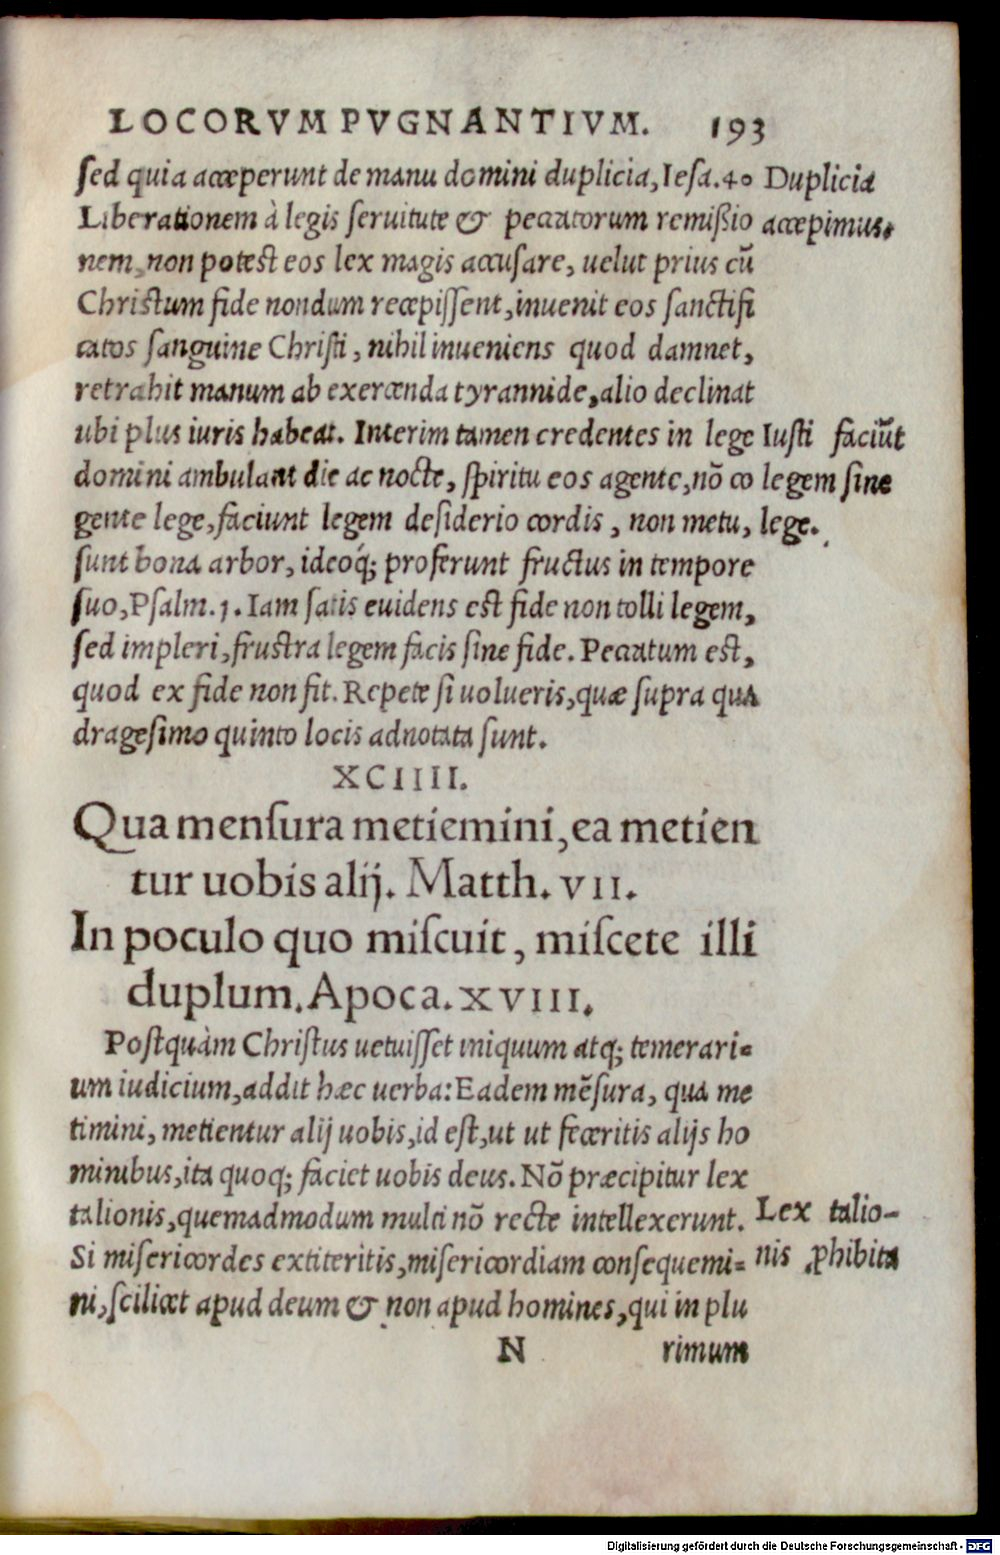 LOCORVM PVGNANTIVM. 193
sed quia acceperunt de manu domini duplicia, Iesa.40 Duplicia
Liberationem à legis seruitute & peccatorum remißio accepimus.
nem, non potest eos lex magis accusare, uelut prius cū
Christum fide nondum recepissent, inuenit eos sanctifi
catos sanguine Christi, nihil inueniens quod damnet,
retrahit manum ab exercenda tyrannide, alio declinat
ubi plus iuris habeat. Interim tamen credentes in lege Iusti faciūt
domini ambulant die ac nocte, spiritu eos agente, nō co legem sine
gente lege, faciunt legem desiderio cordis, non metu, lege.
sunt bona arbor, ideoq́; proferunt fructus in tempore
suo, Psalm.1. Iam satis euidens est fide non tolli legem,
sed impleri, frustra legem facis sine fide. Peccatum est,
quod ex fide non fit. Repete si uolueris, quæ supra qua
dragesimo quinto locis adnotata sunt.
XCIIII.
Qua mensura metiemini, ea metien
tur uobis alij. Matth. VII.
In poculo quo miscuit, miscete illi
duplum. Apoca. XVIII.
Postquàm Christus uetuisset iniquum atq; temerari=
um iudicium, addit hæc uerba: Eadem mēsura, qua me
timini, metientur alij uobis, id est, ut ut feceritis alijs ho
minibus, ita quoq; faciet uobis deus. Nō præcipitur lex
talionis, quemadmodum multi nō recte intellexerunt. Lex talio-
Si misericordes extiteritis, misericordiam consequemi= nis ꝓhibita
ni, scilicet apud deum & non apud homines, qui in plu
N rimum
Digitalisierung gefördert durch die Deutsche Forschungsgemeinschaft - DFG